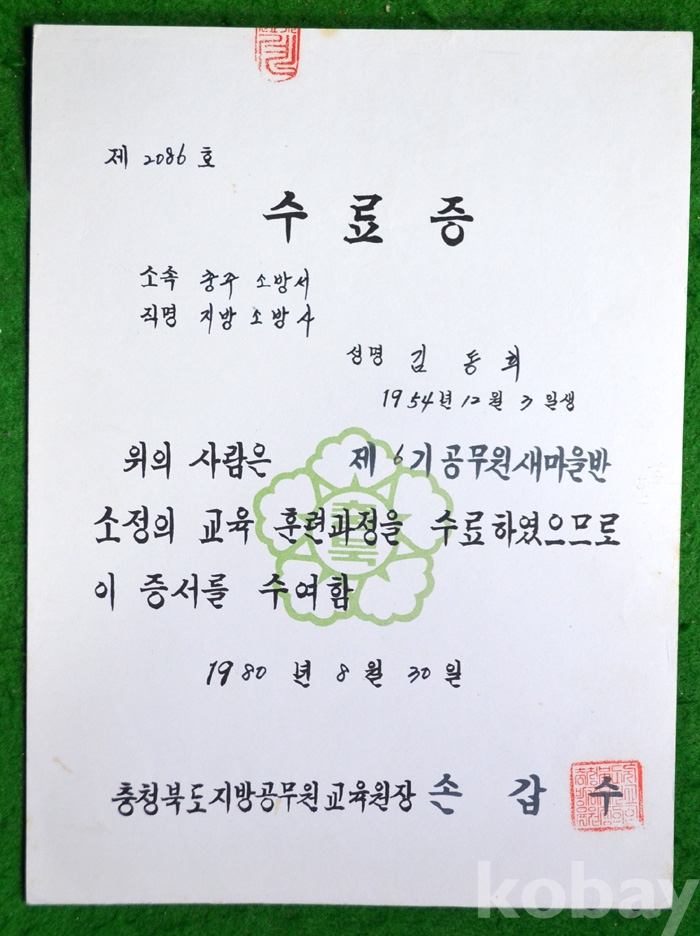 제 2086 호
수 료 증
소속 충주 소방서
직명 지방 소방사
성명 김 동 희
1954년 12월 3일생
위의 사람은 제 6기 공무원새마을반
소정의 교육 훈련과정을 수료하였으므로
이 증서를 수여함
충북
1980 년 8 월 30 일
충청북도지방공무원교육원장 손 갑 수
kobay